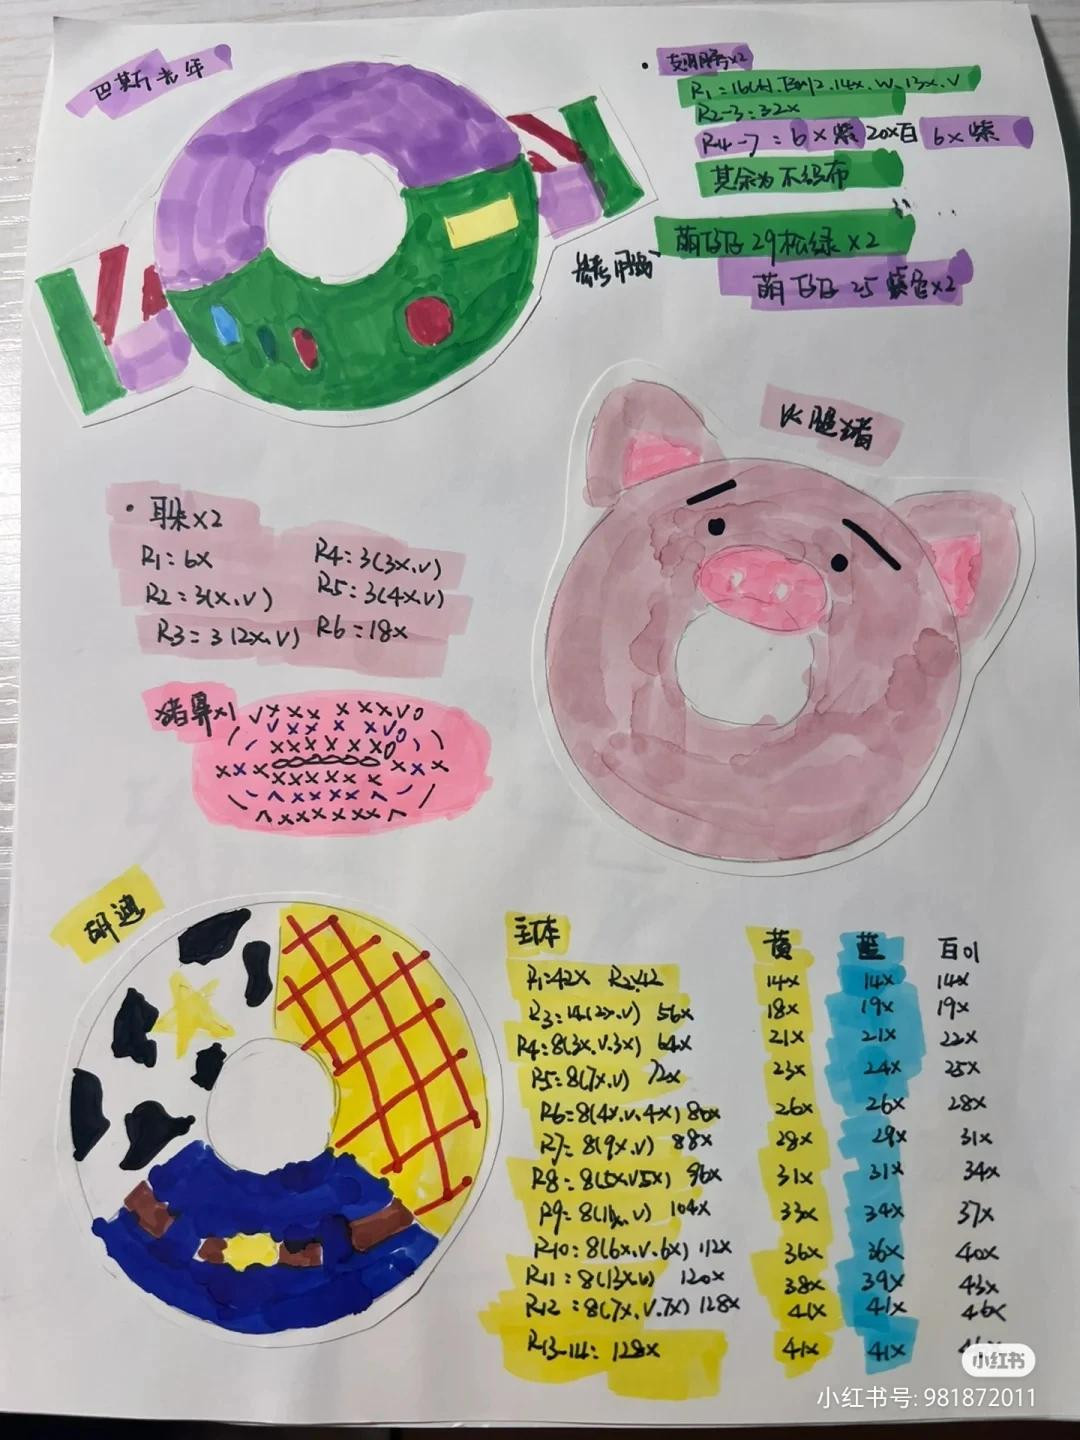 巴斯光年
翅膀×2
R2-3=32x
R4-7=6x紫 20x白 6x紫
其余为不织布
萌仔仔29松绿×2
萌仔仔25紫色×2
火腿猪
耳朵×2
R1=6x
R2=3(x.v)
R3=3(2x.v)
R4=3(3x.v)
R5=3(4x.v)
R6=18x
猪鼻×1
胡迪
主体 黄 蓝 白01
R1:42x R2:42 14x 14x 14x
R3=14(2x.v) 56x 18x 19x 19x
R4=8(3x.v.3x) 64x 21x 21x 22x
R5=8(7x.v) 72x 23x 24x 25x
R6=8(4x.v.4x) 80x 26x 26x 28x
R7=8(9x.v) 88x 28x 29x 31x
R8=8(5x.v.5x) 96x 31x 31x 34x
R9=8(11x.v) 104x 33x 34x 37x
R10=8(6x.v.6x) 112x 36x 36x 40x
R11=8(13x.v) 120x 38x 39x 43x
R12=8(7x.v.7x) 128x 41x 41x 46x
R13-14: 128x 41x 41x
小红书
小红书号: 981872011